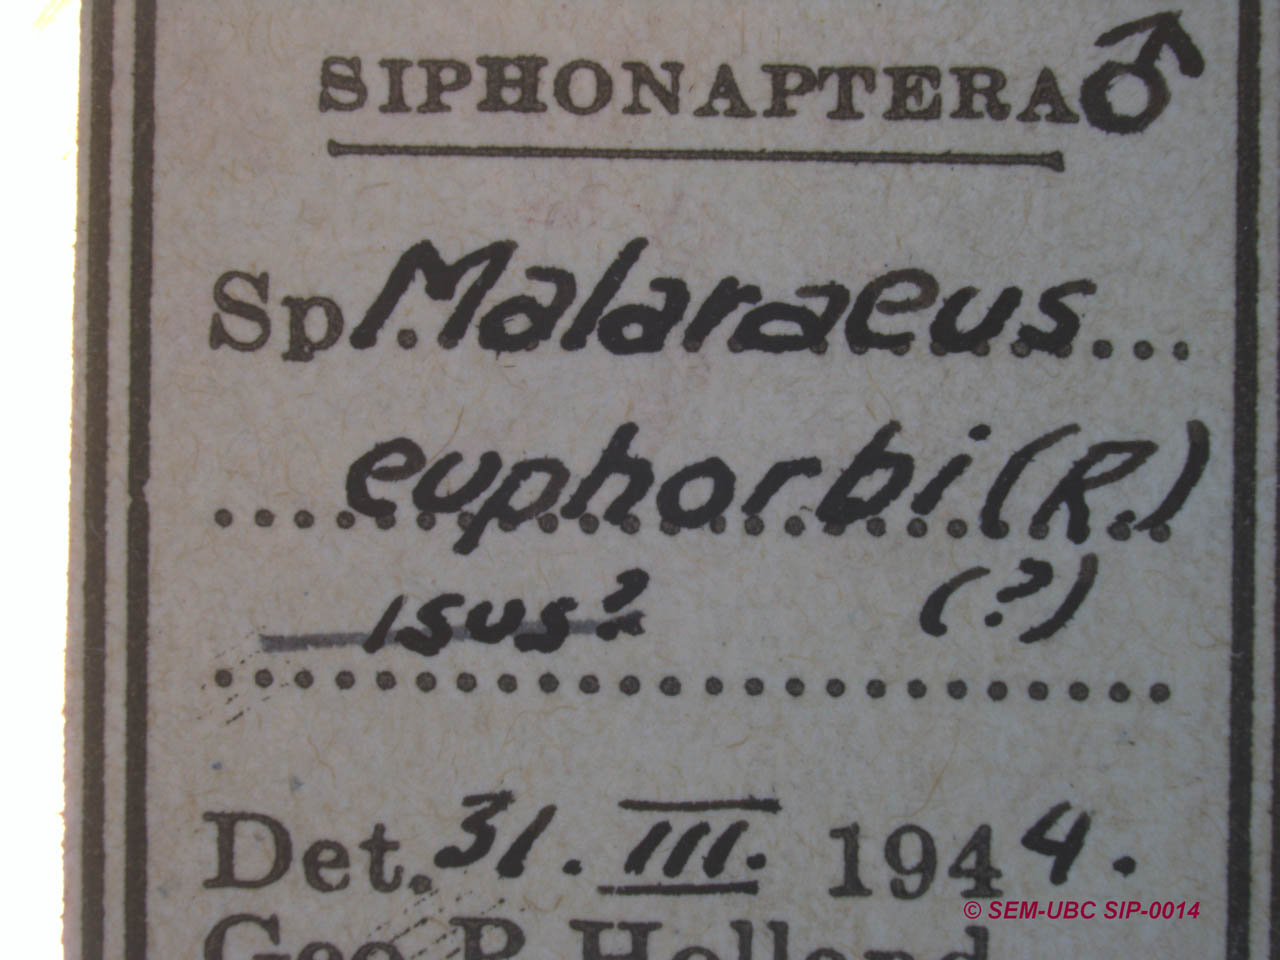 SIPHONAPTERA♂
Sp. Malaraeus...
....euphorbi (R.)
isus? (?)
Det. 31. III. 1944.
© SEM-UBC SIP-0014
Geo. P. Holland